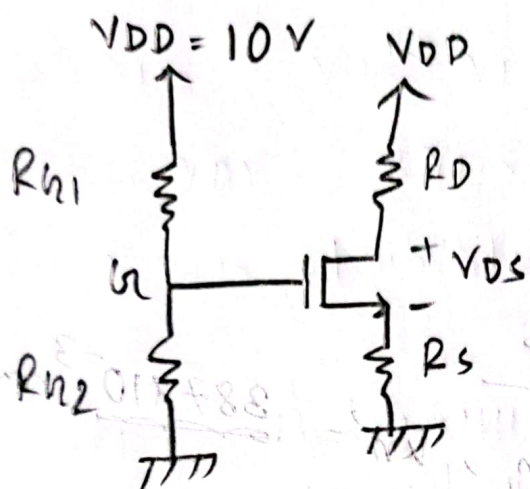 VDD = 10 V
VDD
RG1
RD
G
+
VDS
-
RG2
RS